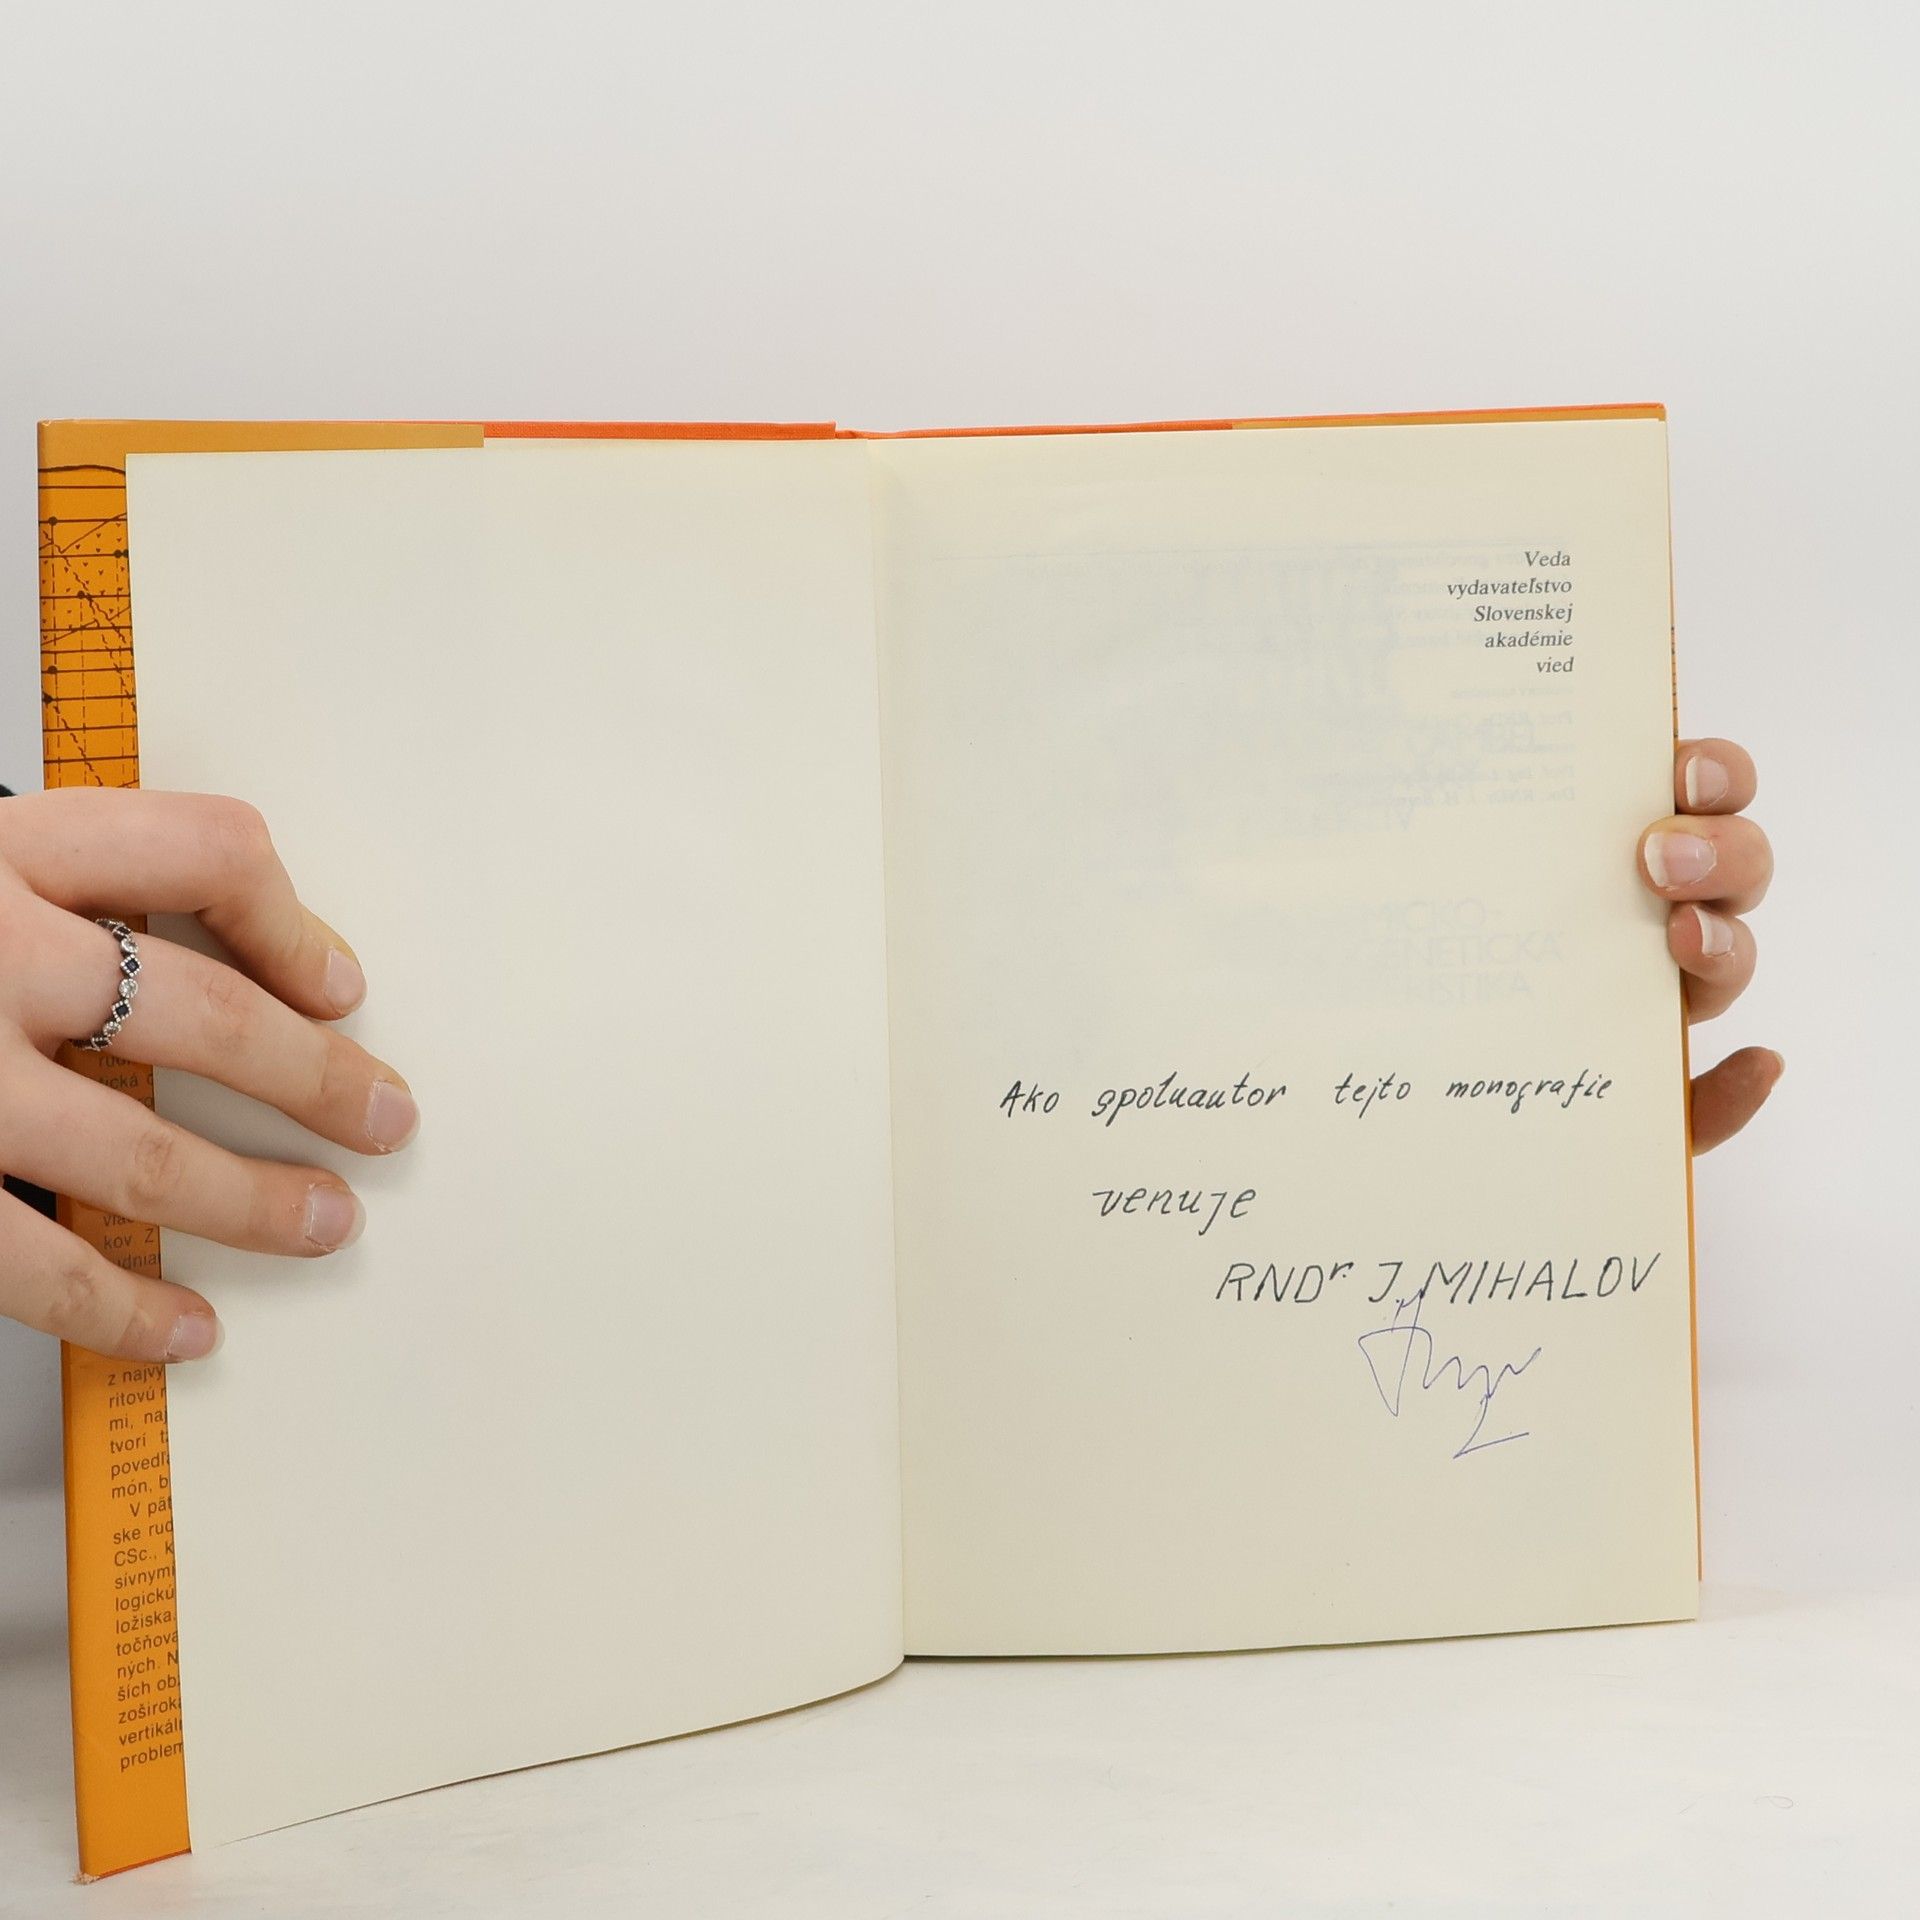 Veda
vydavateľstvo
Slovenskej
akadémie
vied
Ako spoluautor tejto monografie
venuje
RNDr. J. MIHALOV
kov Z
z najvy
ritovú
mi, naj
tvorí
povedľa
món, b
V pät
ske rud
CSc., k
sívnymi
logickú
ložiska.
točňova
ných. N
ších ob
zoširoka
vertikál
problem